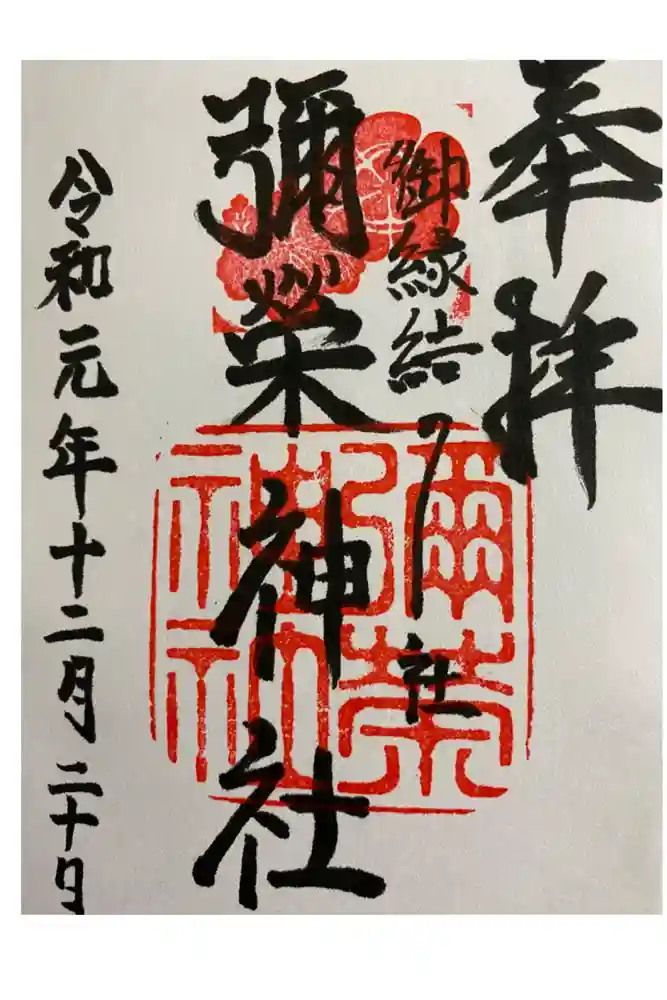 奉拝
御縁結ノ社
彌榮神社
令和元年十二月二十日
彌榮神社